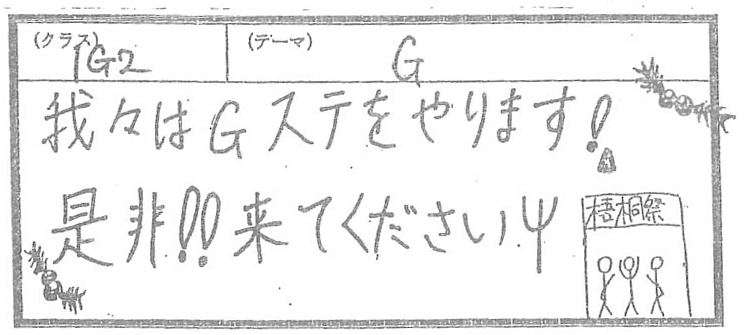 (クラス) (テーマ)
1G2 G
我々はGステをやります!
是非!!来てくださいψ
梧桐祭